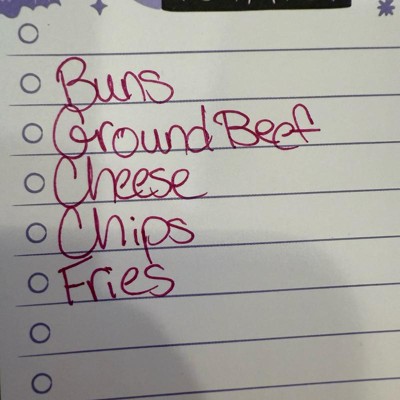 Buns
Ground Beef
Cheese
Chips
Fries